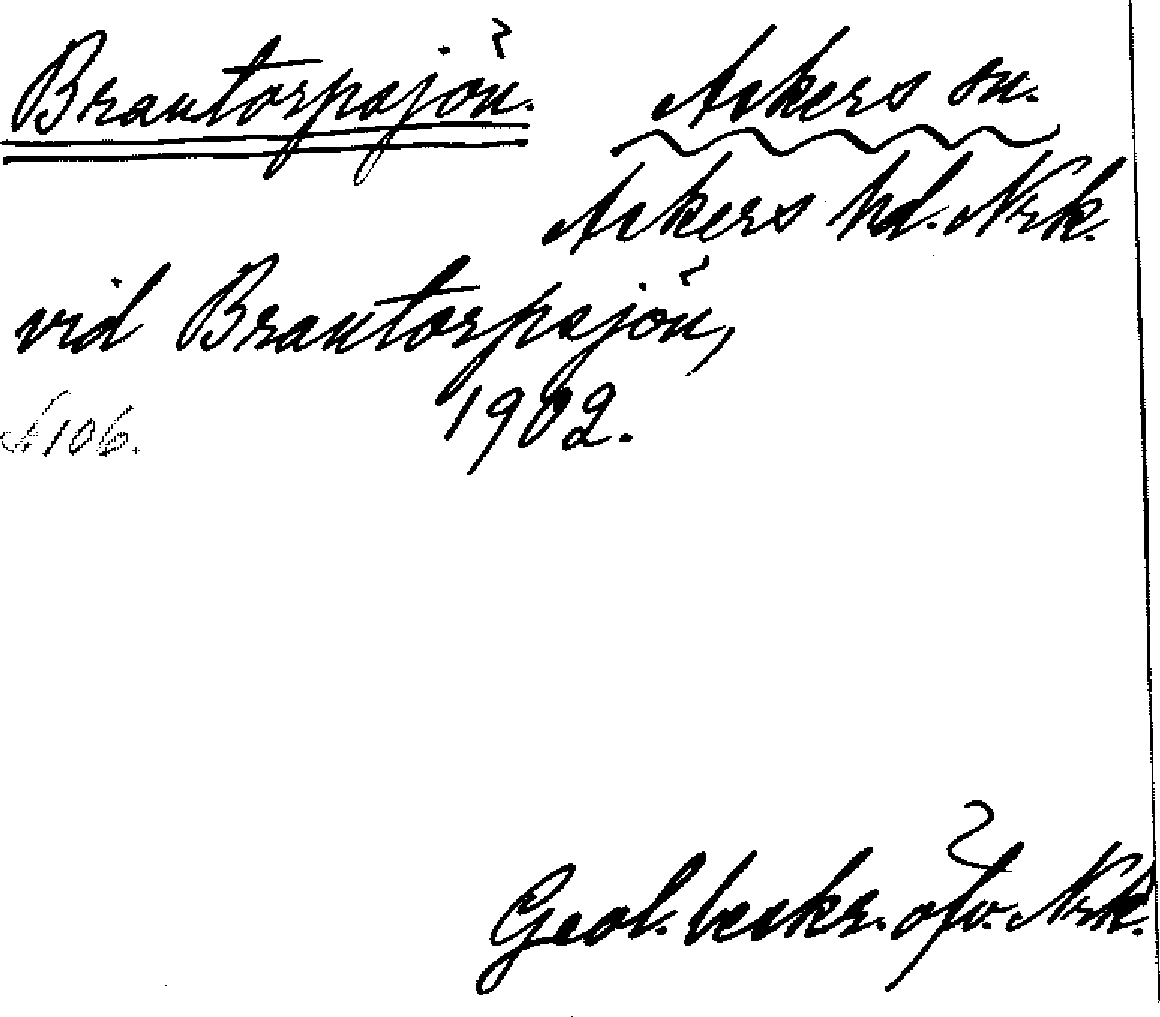 Brantorpsjön. Askers sn.
Askers hd. Nrk.
vid Brantorpsjön,
1902.
N. 106.
Geol. beskr. öfv. Nrk.